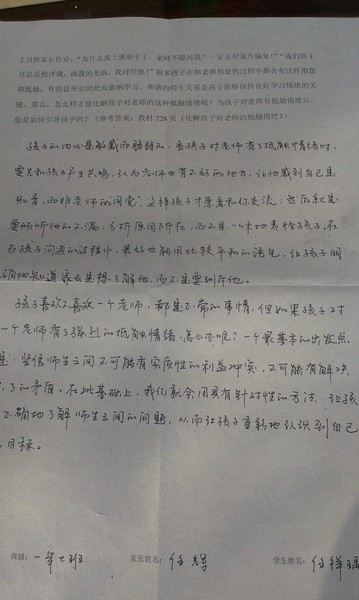 2月份家长作业："为什么我上课举手了，老师不提问我？一定是对我有偏见！""我们班主
任总是批评我，挑我的毛病，我讨厌他！"很多孩子在和老师相处的过程中都会有这样抱怨
和抵触，有的甚至会因此而影响学习，和谐的师生关系是孩子能够保持良好学习情绪的关
键，那么，怎么样才能化解孩子对老师的这种抵触情绪呢？当孩子对老师有抵触情绪后，
你是如何引导孩子的？（参考答案：教材228页《化解孩子对老师的抵触情绪》）
孩子的内心是敏感而脆弱的，当孩子对老师有了抵触情绪时，
要先和孩子产生共鸣，认为老师也有不好的地方，让他感到自己是
知音，而非老师的"同党"，这样孩子才愿意和你交流，然后就是
要倾听他的不满，分析原因所在，而不是一味地责怪孩子，在
与孩子沟通的过程中，最好也能用比较平和的语气，让孩子明
确地知道家长是想了解他，而不是要训斥他。
孩子喜欢不喜欢一个老师，都是正常的事情，但如果孩子对
一个老师有了强烈的抵触情绪，怎么办呢？一个最基本的出发点
是：坚信师生之间不可能有实质性的利益冲突，不可能有解决
了的矛盾，在此基础上，我们就会用具有针对性的方法，让孩
正确地了解师生之间的问题，从而让孩子重新地认识到自己
目标。
班级：一年七班 家长姓名：任 学生姓名：任祥瑞